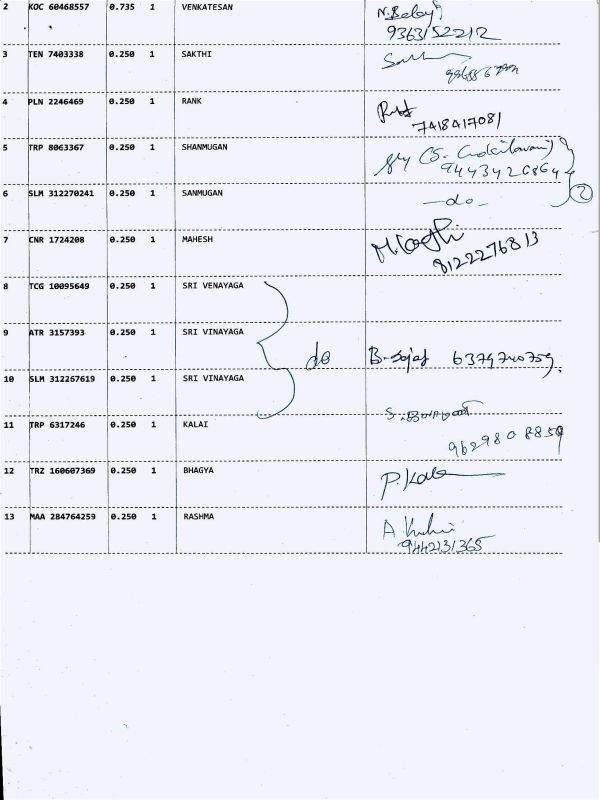 2 KOC 60468557 0.735 1 VENKATESAN
9363152212
3 TEN 7403338 0.250 1 SAKTHI
4 PLN 2246469 0.250 1 RANK
7418417081
5 TRP 8063367 0.250 1 SHANMUGAN
6 SLM 312270241 0.250 1 SANMUGAN
-do-
2
7 CNR 1724208 0.250 1 MAHESH
8122276813
8 TCG 10095649 0.250 1 SRI VENAYAGA
9 ATR 3157393 0.250 1 SRI VINAYAGA
do
10 SLM 312267619 0.250 1 SRI VINAYAGA
11 TRP 6317246 0.250 1 KALAI
9629808859
12 TRZ 160607369 0.250 1 BHAGYA
13 MAA 284764259 0.250 1 RASHMA
9442131365